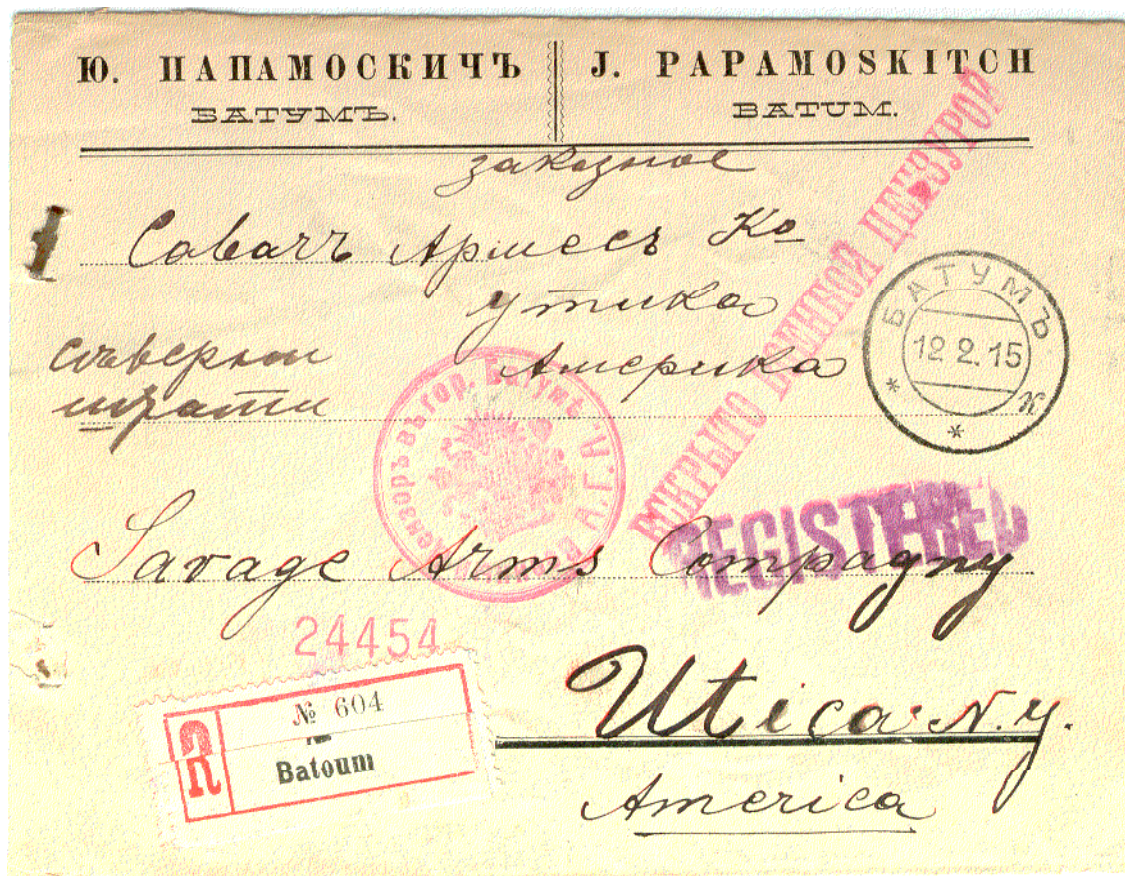 Ю. ПАПАМОСКИЧЪ
БАТУМЪ.
J. PAPAMOSKITCH
BATUM.
заказное
Савачъ Армсъ Ко
утика
Америка
съверныи
штати
ВСКРЫТО ВОЕННОЙ ЦЕНЗУРОЙ
БАТУМЪ
12 2.15
к
Цензоръ въ гор. Батумъ
REGISTERED
Savage Arms Compagny
24454
R
№ 604
Batoum
Utica N.Y.
America